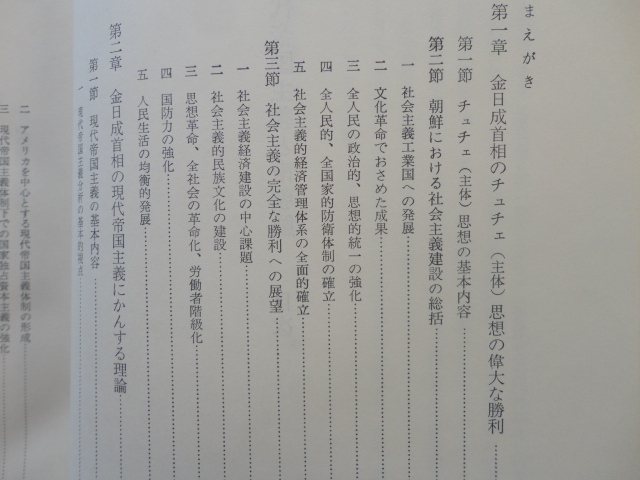 まえがき
第一章 金日成首相のチュチェ（主体）思想の偉大な勝利
第一節 チュチェ（主体）思想の基本内容
第二節 朝鮮における社会主義建設の総括
一 社会主義工業国への発展
二 文化革命でおさめた成果
三 全人民の政治的、思想的統一の強化
四 全人民的、全国家的防衛体制の確立
五 社会主義的経済管理体系の全面的確立
第三節 社会主義の完全な勝利への展望
一 社会主義経済建設の中心課題
二 社会主義的民族文化の建設
三 思想革命、全社会の革命化、労働者階級化
四 国防力の強化
五 人民生活の均衡的発展
第二章 金日成首相の現代帝国主義にかんする理論
第一節 現代帝国主義の基本内容
一 現代帝国主義分析の基本的視点
二 アメリカを中心とする現代帝国主義体制の形成
三 現代帝国主義体制下での国家独占資本主義の強化